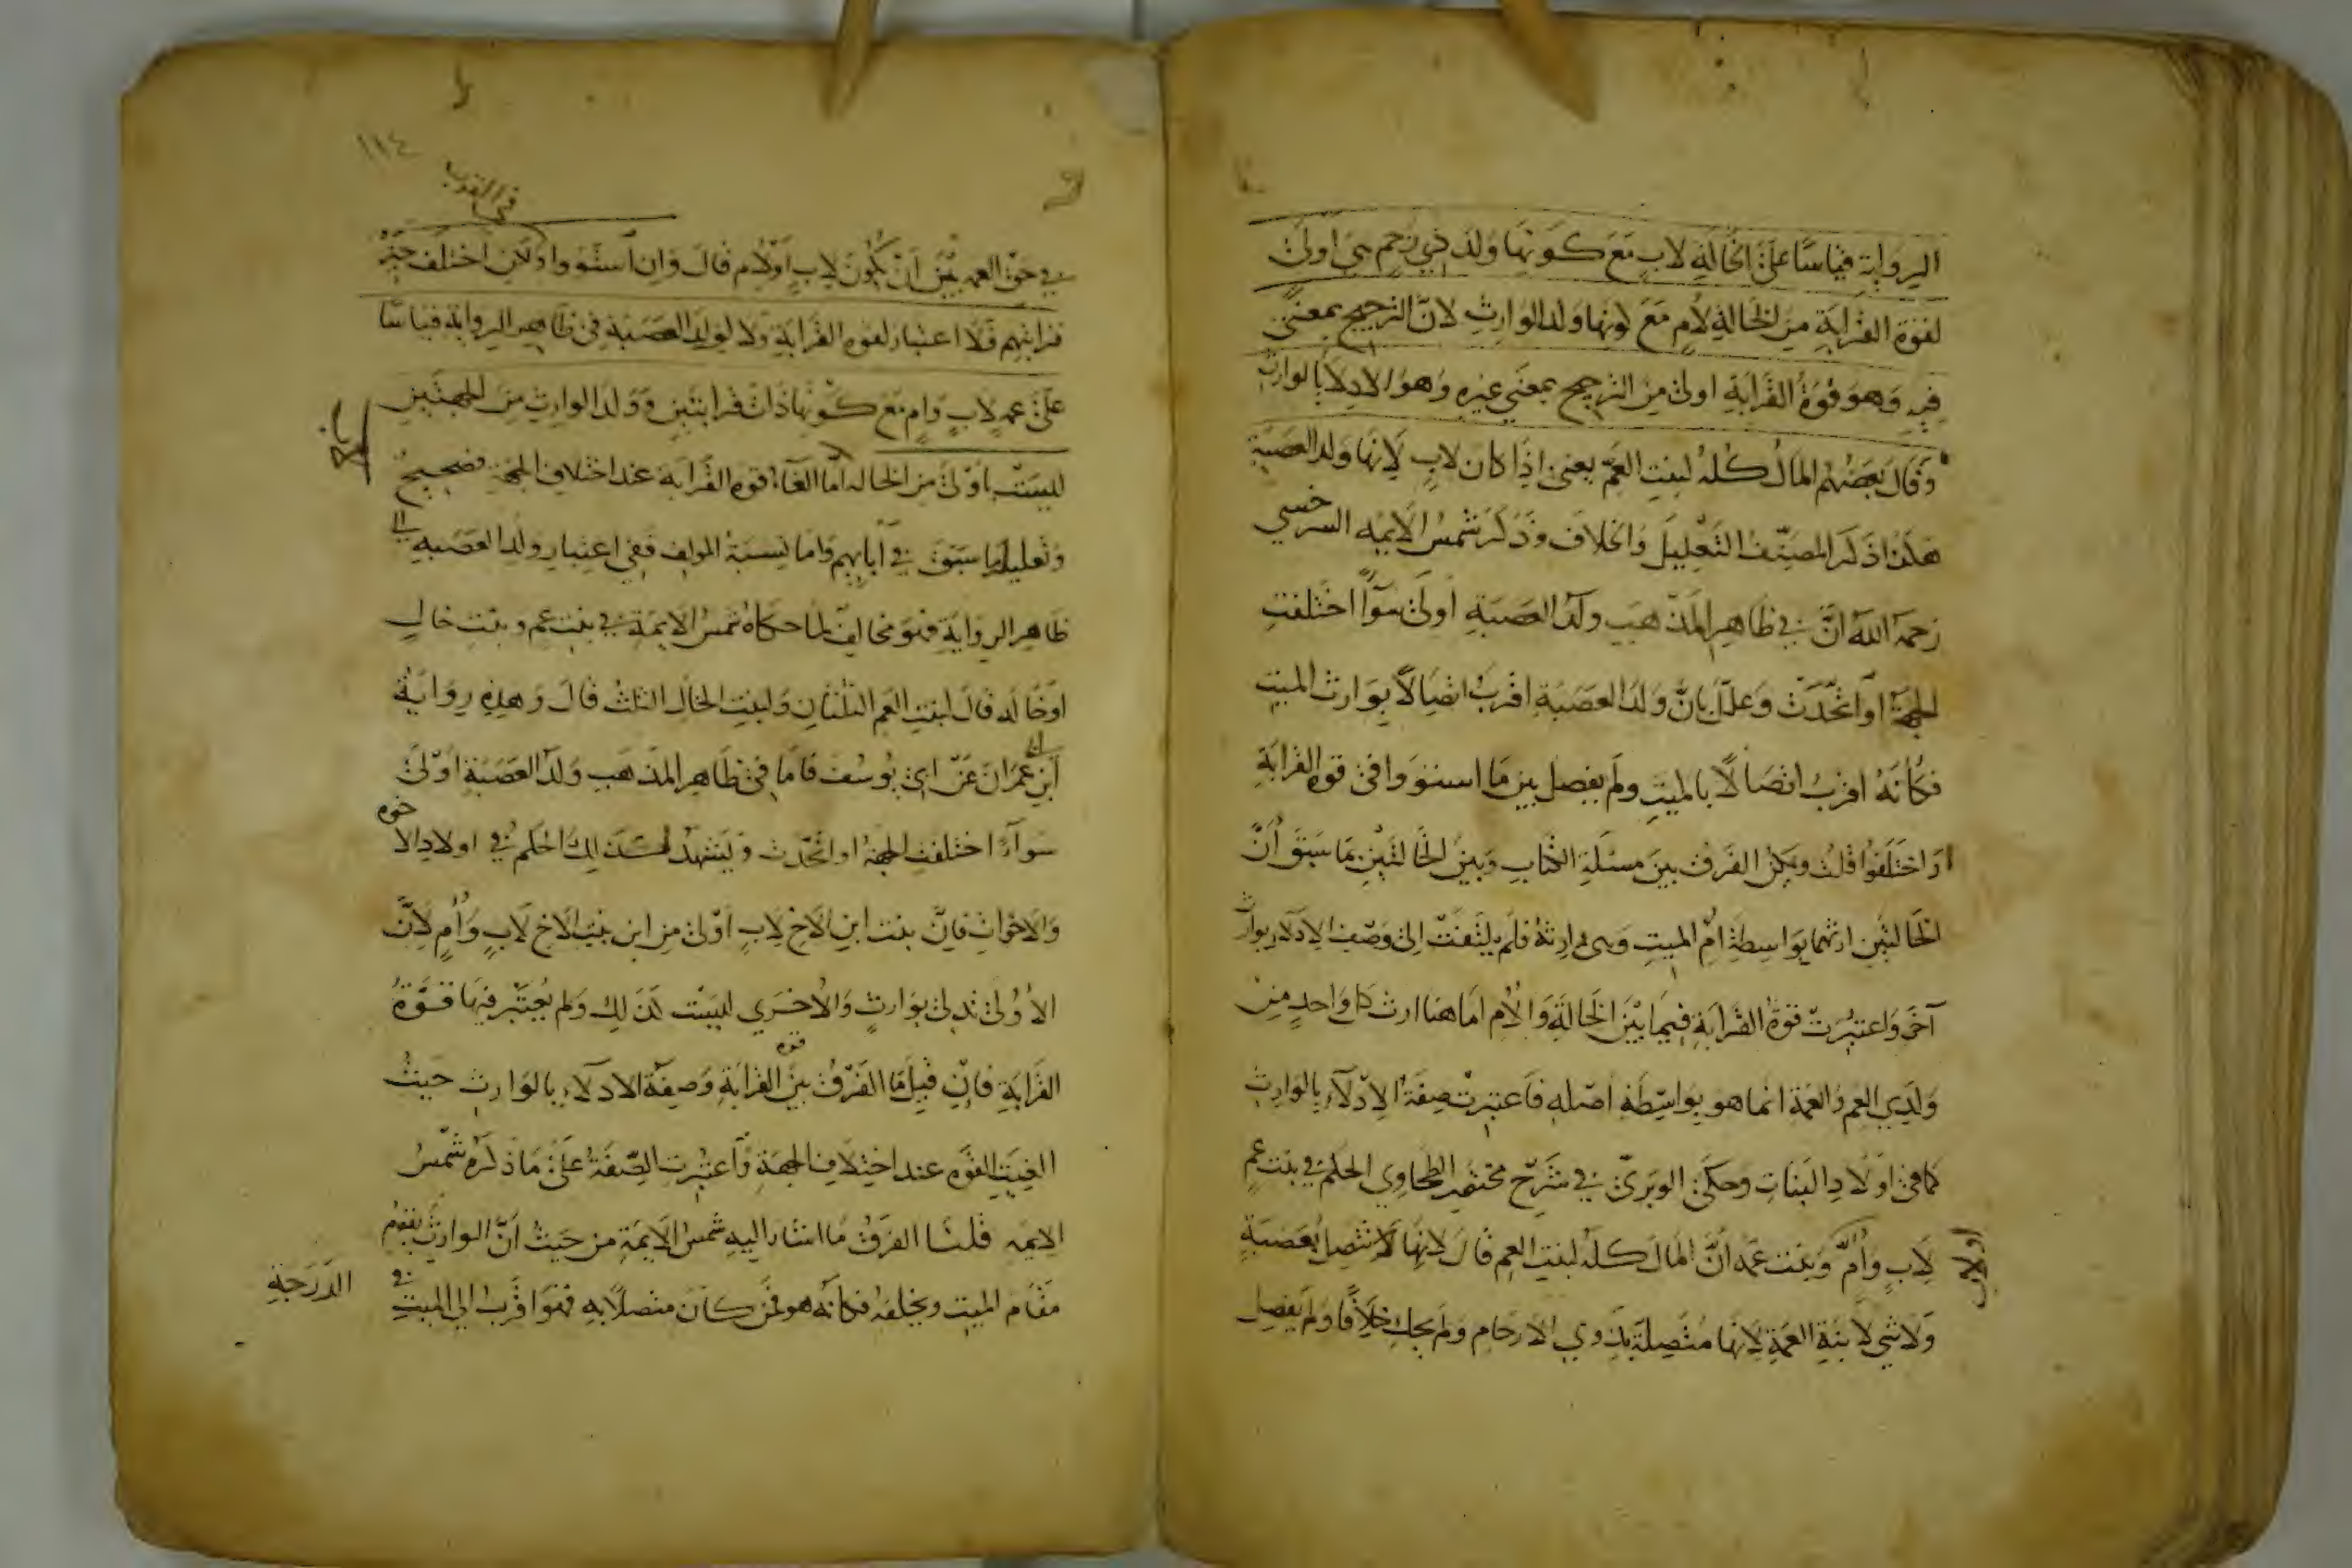 الرواية قياسًا على الخالة لاب مع كونها ولد ذي رحم هي اولى
لقوة القرابة من الخالة لام مع كونها ولد الوارث لان الترجيح بمعنى
فيه وهو قوة القرابة اولى من الترجيح بمعنى غيره وهو الادلا بالوارث
وقال بعضهم المال كله لبنت العم يعني اذا كان لاب لانها ولد العصبة
هكذا ذكر المصنف التعليل والخلاف وذكر شمس الايمه السرخسي
رحمه الله ان في ظاهر المذهب ولد العصبة اولى سوآ اختلفت
الجهة او اتحدت وعلل بان ولد العصبة اقرب اتصالًا بوارث الميت
فكانه اقرب اتصالًا بالميت ولم يفصل بين ما استووا في قوة القرابة
او اختلفوا قلت ويمكن الفرق بين مسئلة الكتاب وبين الخالتين بما سبق ان
الخالتين ارثهما بواسطة ام الميت وهي وارثة فلم يلتفت الى وصف الادلاء بوارث
آخر واعتبرت قوة القرابة فيما بين الخالة والام اما هنا ارث كل واحد من
ولدي العم والعمة انما هو بواسطة اصله فاعتبرت صفة الادلاء بالوارث
كما في اولاد البنات وحكى الوبري في شرح مختصر الطحاوي الحكم في بنت عم
لاب وام وبنت عمه ان المال كله لبنت العم قال لانها تتصل بعصبة
ولا شي لابنة العمة لانها متصلة بذوي الارحام ولم يحك خلافًا ولم يفصل
١١٤
في القرب
في حق العمه بين ان يكون لاب او لام قال وان استووا ولكن اختلف حيز
قرابتهم فلا اعتبار لقوة القرابة ولا لولد العصبة في ظاهر الرواية قياسًا
على عمه لاب وام مع كونها ذات قرابتين وولد الوارث من الجهتين
ليست باولى من الخاله اما الغاء قوة القرابة عند اختلاف الجهة فصحيح
وتعليله ما سبق في آبايهم واما نسبة المولف نفي اعتبار ولد العصبه الى
ظاهر الرواية فهو مخالف لما حكاه شمس الايمة في بنت عم وبنت خال
او خالة قال لبنت العم الثلثان ولبنت الخال الثلث قال وهذه رواية
ابن عمران عن ابي يوسف فاما في ظاهر المذهب ولد العصبة اولى
سوآءً اختلفت الجهة او اتحدت ويشهد لذلك الحكم في اولاد الاخوه
والاخوات فان بنت ابن الاخ لاب اولى من ابن بنت الاخ لاب وام لان
الاولى تدلي بوارث والاخرى ليست كذلك ولم يعتبر فيها قوة
القرابة فان قيل ما الفرق بين قوة القرابة وصفة الادلاء بالوارث حيث
الغيت القوه عند اختلاف الجهة واعتبرت الصفة على ما ذكره شمس
الايمه قلنا الفرق ما اشار اليه شمس الايمة من حيث ان الوارث يقوم
مقام الميت ويخلفه فكانه هو فمن كان متصلًا به فهو اقرب الى الميت في
الدرجة